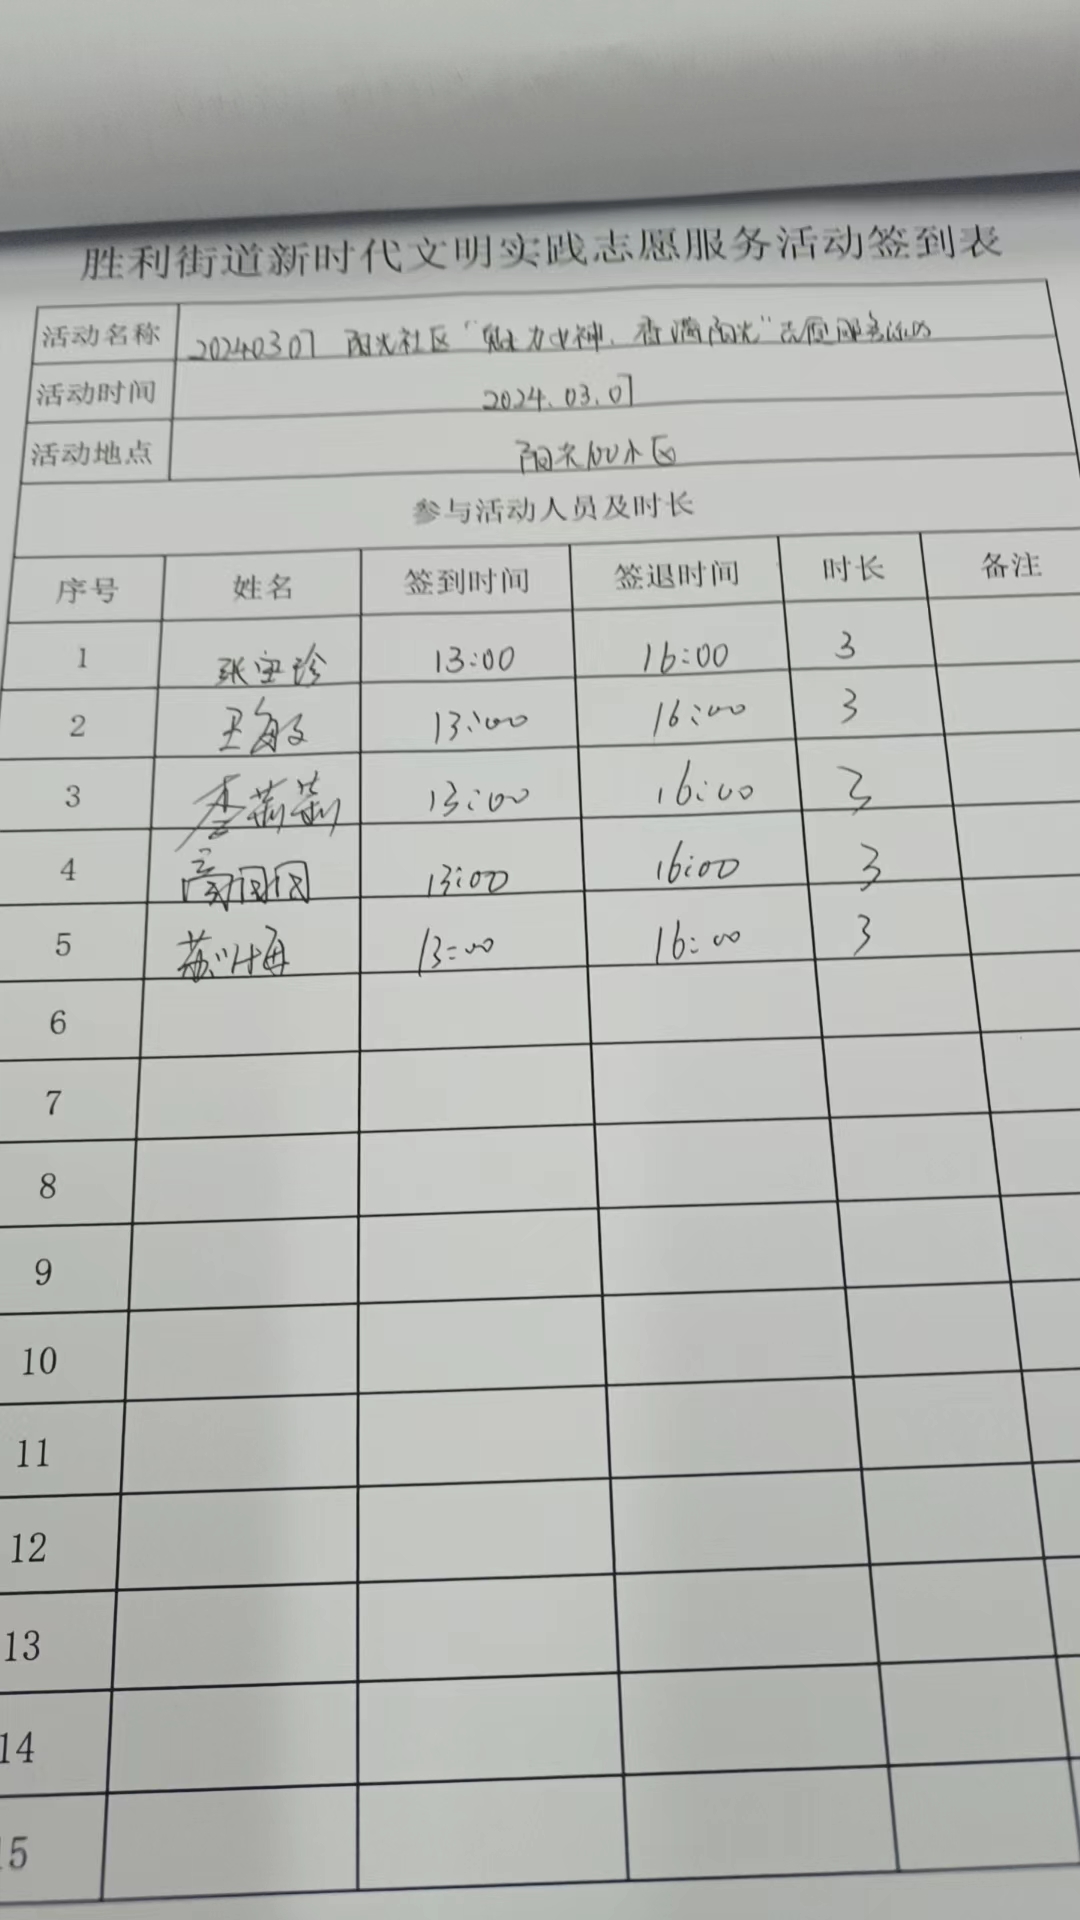 胜利街道新时代文明实践志愿服务活动签到表
活动名称 20240307 阳光社区“魅力女神、香满阳光”志愿服务活动
活动时间 2024.03.07
活动地点 阳光100小区
参与活动人员及时长
序号 姓名 签到时间 签退时间 时长 备注
1 张宝珍 13:00 16:00 3
2 王海文 13:00 16:00 3
3 李莉莉 13:00 16:00 3
4 高团团 13:00 16:00 3
5 苏海 13:00 16:00 3
6
7
8
9
10
11
12
13
14
15